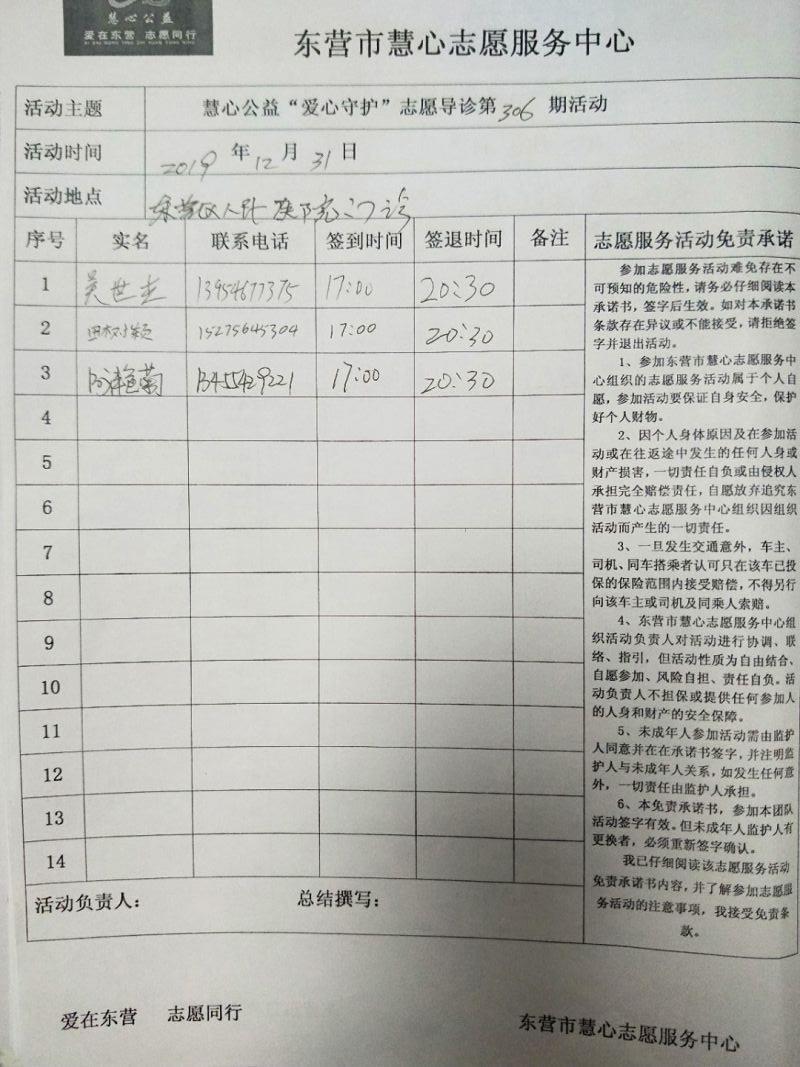 慧心公益
爱在东营 志愿同行
东营市慧心志愿服务中心
活动主题 慧心公益“爱心守护”志愿导诊第306期活动
活动时间 2019年12月31日
活动地点 东营区人民医院门诊
序号 实名 联系电话 签到时间 签退时间 备注
1 吴世杰 13954677375 17:00 20:30
2 15275645304 17:00 20:30
3 17:00 20:30
4
5
6
7
8
9
10
11
12
13
14
活动负责人： 总结撰写：
志愿服务活动免责承诺
参加志愿服务活动难免存在不
可预知的危险性，请务必仔细阅读本
承诺书，签字后生效。如对本承诺书
条款存在异议或不能接受，请拒绝签
字并退出活动。
1、参加东营市慧心志愿服务中
心组织的志愿服务活动属于个人自
愿，参加活动要保证自身安全，保护
好个人财物。
2、因个人身体原因及在参加活
动或在往返途中发生的任何人身或
财产损害，一切责任自负或由侵权人
承担完全赔偿责任，自愿放弃追究东
营市慧心志愿服务中心组织因组织
活动而产生的一切责任。
3、一旦发生交通意外，车主、
司机、同车搭乘者认可只在该车已投
保的保险范围内接受赔偿，不得另行
向该车主或司机及同乘人索赔。
4、东营市慧心志愿服务中心组
织活动负责人对活动进行协调、联
络、指引，但活动性质为自由结合、
自愿参加、风险自担、责任自负。活
动负责人不担保或提供任何参加人
的人身和财产的安全保障。
5、未成年人参加活动需由监护
人同意并在在承诺书签字，并注明监
护人与未成年人关系，如发生任何意
外，一切责任由监护人承担。
6、本免责承诺书，参加本团队
活动签字有效。但未成年人监护人有
更换者，必须重新签字确认。
我已仔细阅读该志愿服务活动
免责承诺书内容，并了解参加志愿服
务活动的注意事项，我接受免责条
款。
爱在东营 志愿同行
东营市慧心志愿服务中心